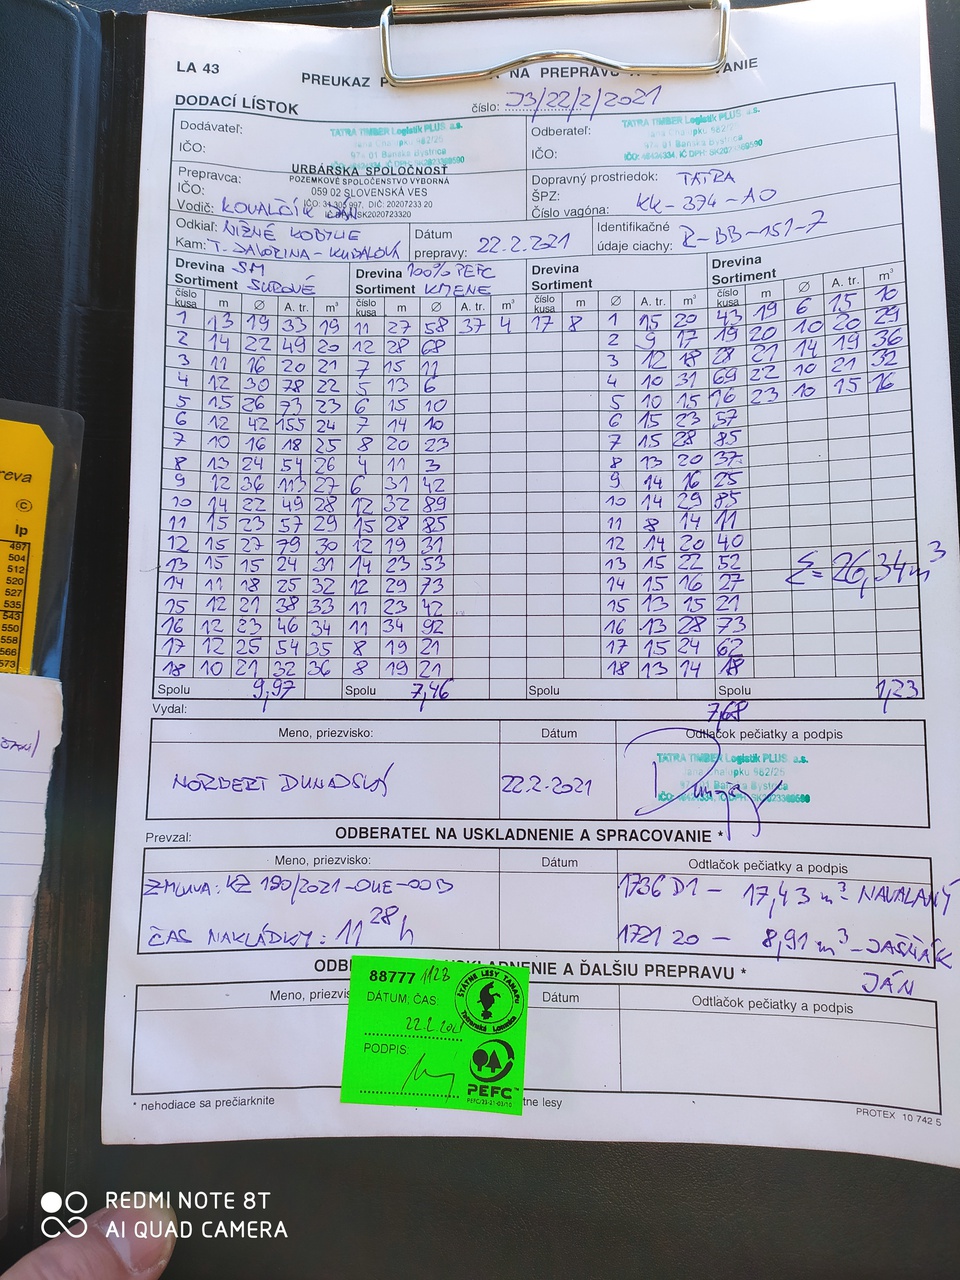 LA 43
PREUKAZ P NA PREPRAVU
DODACÍ LÍSTOK
číslo: J3/22/2/2021
Dodávateľ:
TATRA TIMBER Logistik PLUS a.s.
IČO:
Odberateľ:
TATRA TIMBER Logistik PLUS a.s.
IČO:
Prepravca:
URBÁRSKA SPOLOČNOSŤ
POZEMKOVÉ SPOLOČENSTVO VÝBORNÁ
IČO:
059 02 SLOVENSKÁ VES
Vodič: KOVALČÍK JÁN
Dopravný prostriedok: TATRA
ŠPZ: KK-374-AO
Číslo vagóna:
Odkiaľ: NIŽNÉ KOBYLIE
Kam: T. JAVORINA-
Dátum prepravy: 22.2.2021
Identifikačné údaje ciachy: R-BB-151-7
Drevina SM Drevina 100% PEFC Drevina Drevina
Sortiment SUROVÉ Sortiment KMENE Sortiment Sortiment
číslo kusa m Ø A. tr. m³ číslo kusa m Ø A. tr. m³ číslo kusa m Ø A. tr. m³ číslo kusa m Ø A. tr. m³
1 13 19 33 19 11 27 58 37 4 17 8 1 15 20 43 19 6 15 10
2 14 22 49 20 12 28 68 2 9 17 19 20 10 20 29
3 11 16 20 21 7 15 11 3 12 18 28 21 14 19 36
4 12 30 78 22 5 13 6 4 10 31 69 22 10 21 32
5 15 26 73 23 6 15 10 5 10 15 16 23 10 15 16
6 12 42 155 24 7 14 10 6 15 23 57
7 10 16 18 25 8 20 23 7 15 28 85
8 13 24 54 26 4 11 3 8 13 20 37
9 12 36 113 27 6 31 42 9 14 16 25
10 14 22 49 28 12 32 89 10 14 29 85
11 15 23 57 29 15 28 85 11 8 14 11
12 15 27 79 30 12 19 31 12 14 20 40
13 15 15 24 31 14 23 53 13 15 22 52
14 11 18 25 32 12 29 73 14 15 16 27
15 12 21 38 33 11 23 42 15 13 15 21
16 12 23 46 34 11 34 92 16 13 28 73
17 12 25 54 35 8 19 21 17 15 24 62
18 10 21 32 36 8 19 21 18 13 14 18
Σ= 26,34 m³
Spolu 9,97 Spolu 7,46 Spolu 7,68 Spolu 1,23
Vydal:
Meno, priezvisko: Dátum Odtlačok pečiatky a podpis
NORBERT 22.2.2021
TATRA TIMBER Logistik PLUS a.s.
Prevzal:
ODBERATEĽ NA USKLADNENIE A SPRACOVANIE *
Meno, priezvisko: Dátum Odtlačok pečiatky a podpis
ZMLUVA: KZ 190/2021-OLE-00B
1736 D1 - 17,43 m³ NAVALANÝ
ČAS NAKLÁDKY: 11 28 h
1721 20 - 8,91 m³ - JAŠŇÁK
JÁN
ODBE USKLADNENIE A ĎALŠIU PREPRAVU *
Meno, priezvis Dátum Odtlačok pečiatky a podpis
88777 1128
DÁTUM, ČAS
22.2.2021
PODPIS
ŠTÁTNE LESY TANAPu
Tatranská Lomnica
PEFC
* nehodiace sa prečiarknite
tne lesy
PROTEX 10 742 5
reva
©
lp
497
504
512
520
527
535
543
550
558
566
573
REDMI NOTE 8T
AI QUAD CAMERA